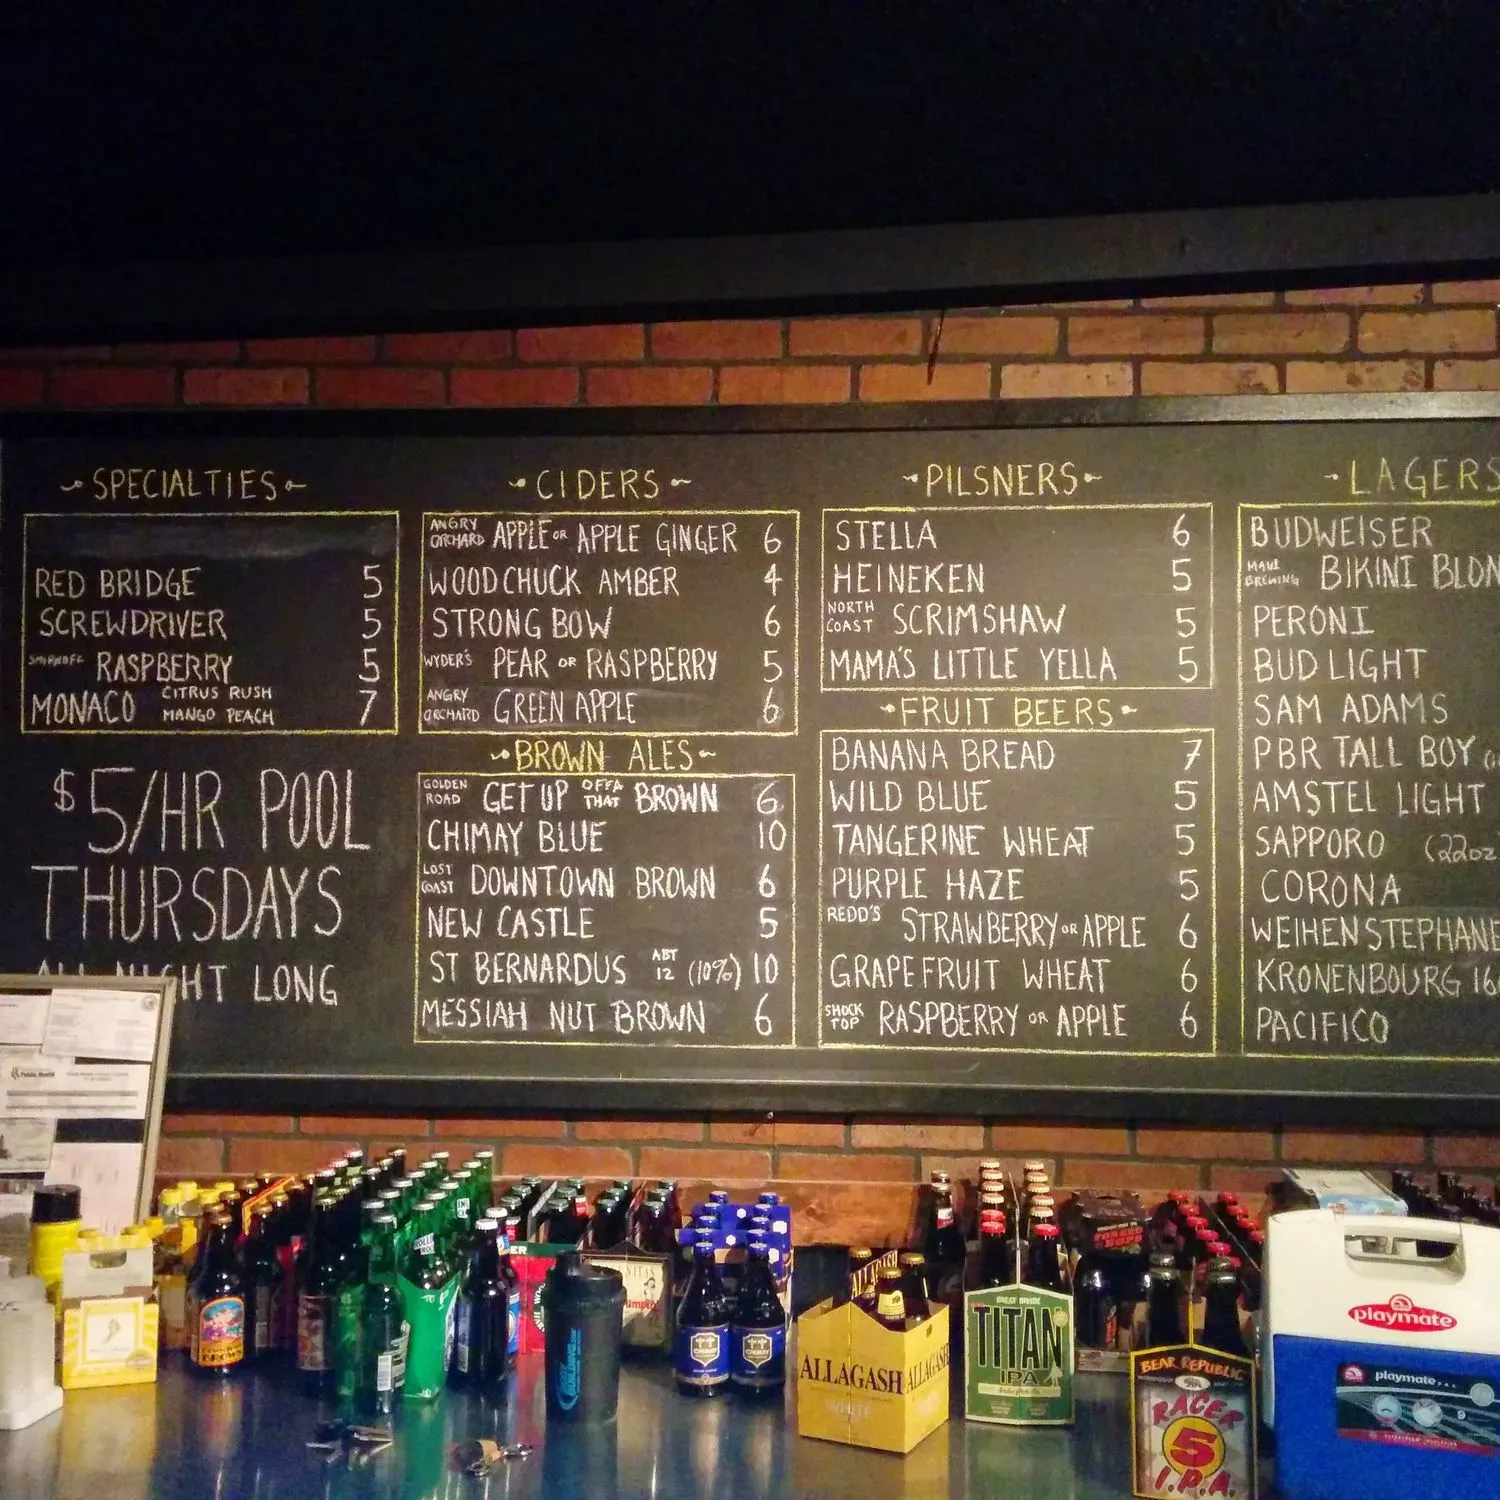 SPECIALTIES
RED BRIDGE 5
SCREWDRIVER 5
SMIRNOFF RASPBERRY 5
MONACO CITRUS RUSH MANGO PEACH 7
$5/HR POOL
THURSDAYS
ALL NIGHT LONG
CIDERS
ANGRY ORCHARD APPLE OR APPLE GINGER 6
WOODCHUCK AMBER 4
STRONG BOW 6
WYDER'S PEAR OR RASPBERRY 5
ANGRY ORCHARD GREEN APPLE 6
BROWN ALES
GOLDEN ROAD GET UP OFFA THAT BROWN 6
CHIMAY BLUE 10
LOST COAST DOWNTOWN BROWN 6
NEW CASTLE 5
ST BERNARDUS ABT 12 (10%) 10
MESSIAH NUT BROWN 6
PILSNERS
STELLA 6
HEINEKEN 5
NORTH COAST SCRIMSHAW 5
MAMA'S LITTLE YELLA 5
FRUIT BEERS
BANANA BREAD 7
WILD BLUE 5
TANGERINE WHEAT 5
PURPLE HAZE 5
REDD'S STRAWBERRY OR APPLE 6
GRAPEFRUIT WHEAT 6
SHOCK TOP RASPBERRY OR APPLE 6
LAGERS
BUDWEISER
MAUI BREWING BIKINI BLON
PERONI
BUD LIGHT
SAM ADAMS
PBR TALL BOY
AMSTEL LIGHT
SAPPORO (22oz
CORONA
WEIHENSTEPHANE
KRONENBOURG 16
PACIFICO
Public Health
CHIMAY
CHIMAY
ALLAGASH
ALLAGASH
ALLAGASH
WHITE
GREAT DIVIDE
TITAN
IPA
BEAR REPUBLIC
RACER
5
I.P.A.
playmate
playmate